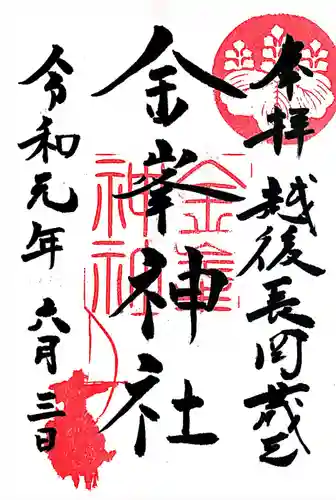 奉拝
越後長岡蔵王
金峯神社
金峯神社
令和元年
六月三日